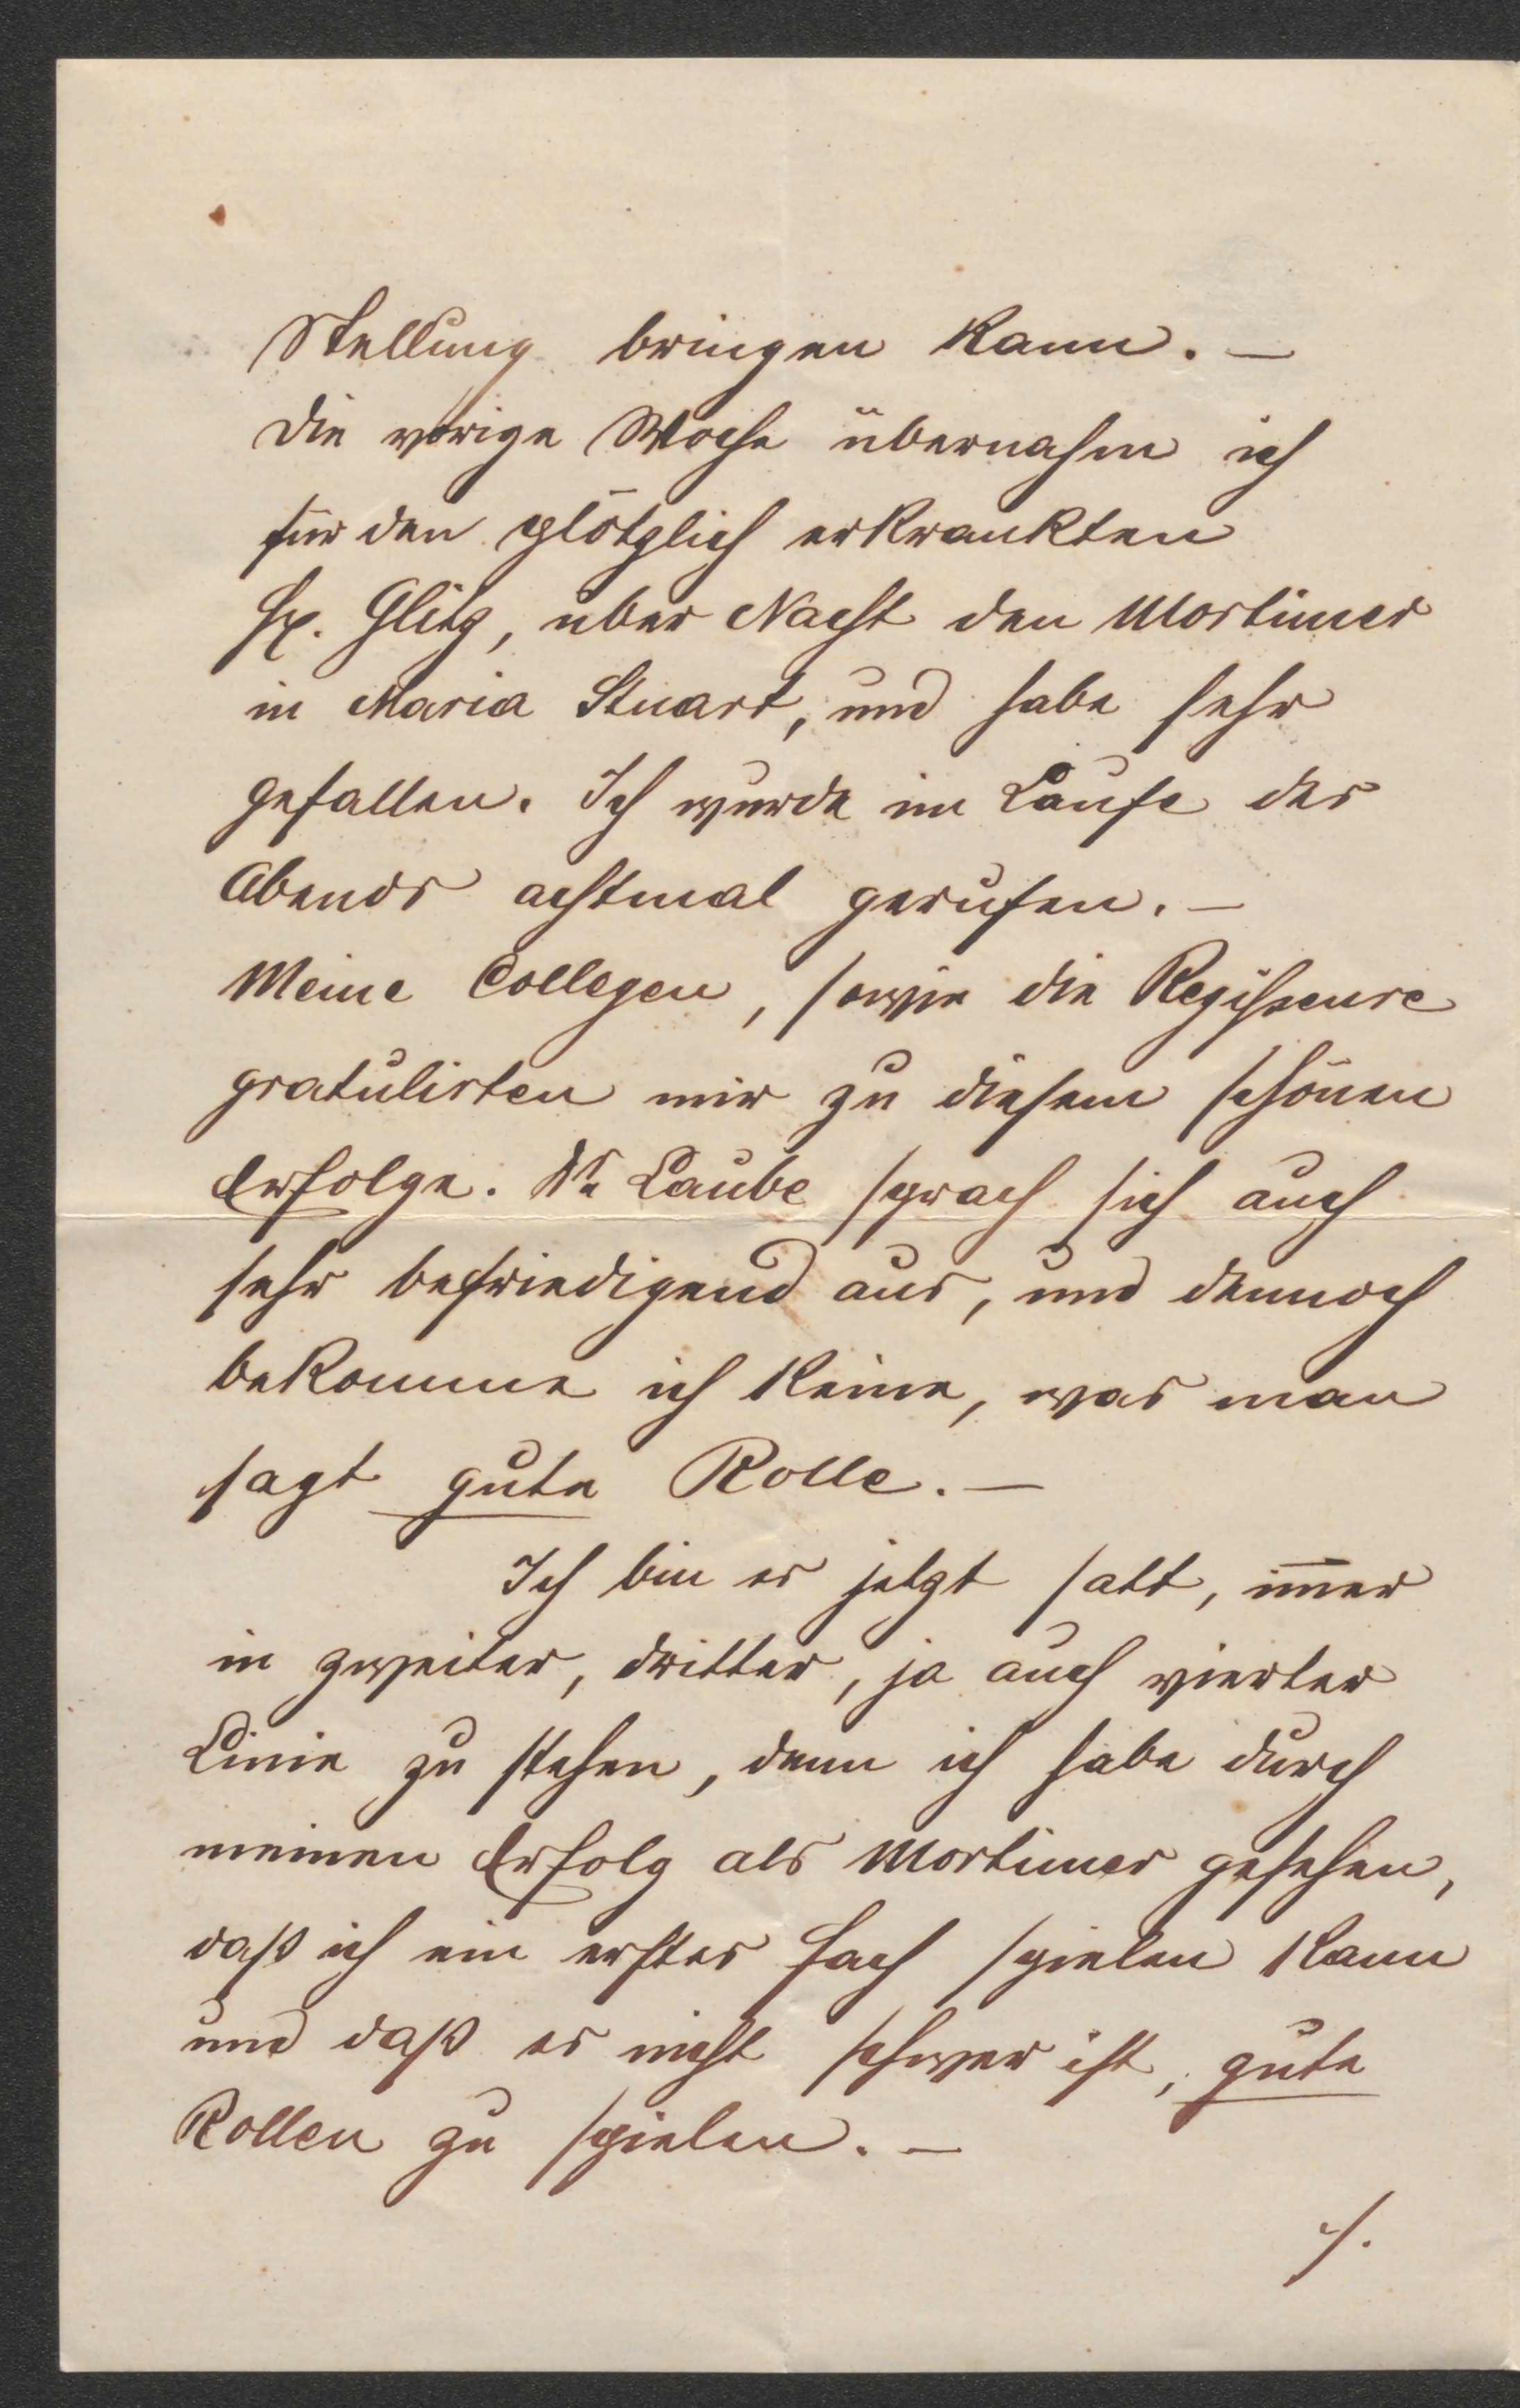 Stellung bringen kann. —
Die vorige Woche übernahm ich
für den plötzlich erkrankten
H. Glitz, über Nacht den Mortimer
in Maria Stuart, und habe sehr
gefallen. Ich wurde im Laufe des
Abends achtmal gerufen. —
Meine Collegen, sowie die Regisseure
gratulirten mir zu diesem schönen
Erfolge. Dr. Laube sprach sich auch
sehr befriedigend aus, und dennoch
bekomme ich keine, was man
sagt gute Rolle. —
Ich bin es jetzt satt, im̅er
in zweiter, dritter, ja auch vierter
Linie zu stehen, denn ich habe durch
meinen Erfolg als Mortimer gesehen,
daß ich ein erstes Fach spielen kann
und daß es nicht schwer ist, gute
Rollen zu spielen. —
./.